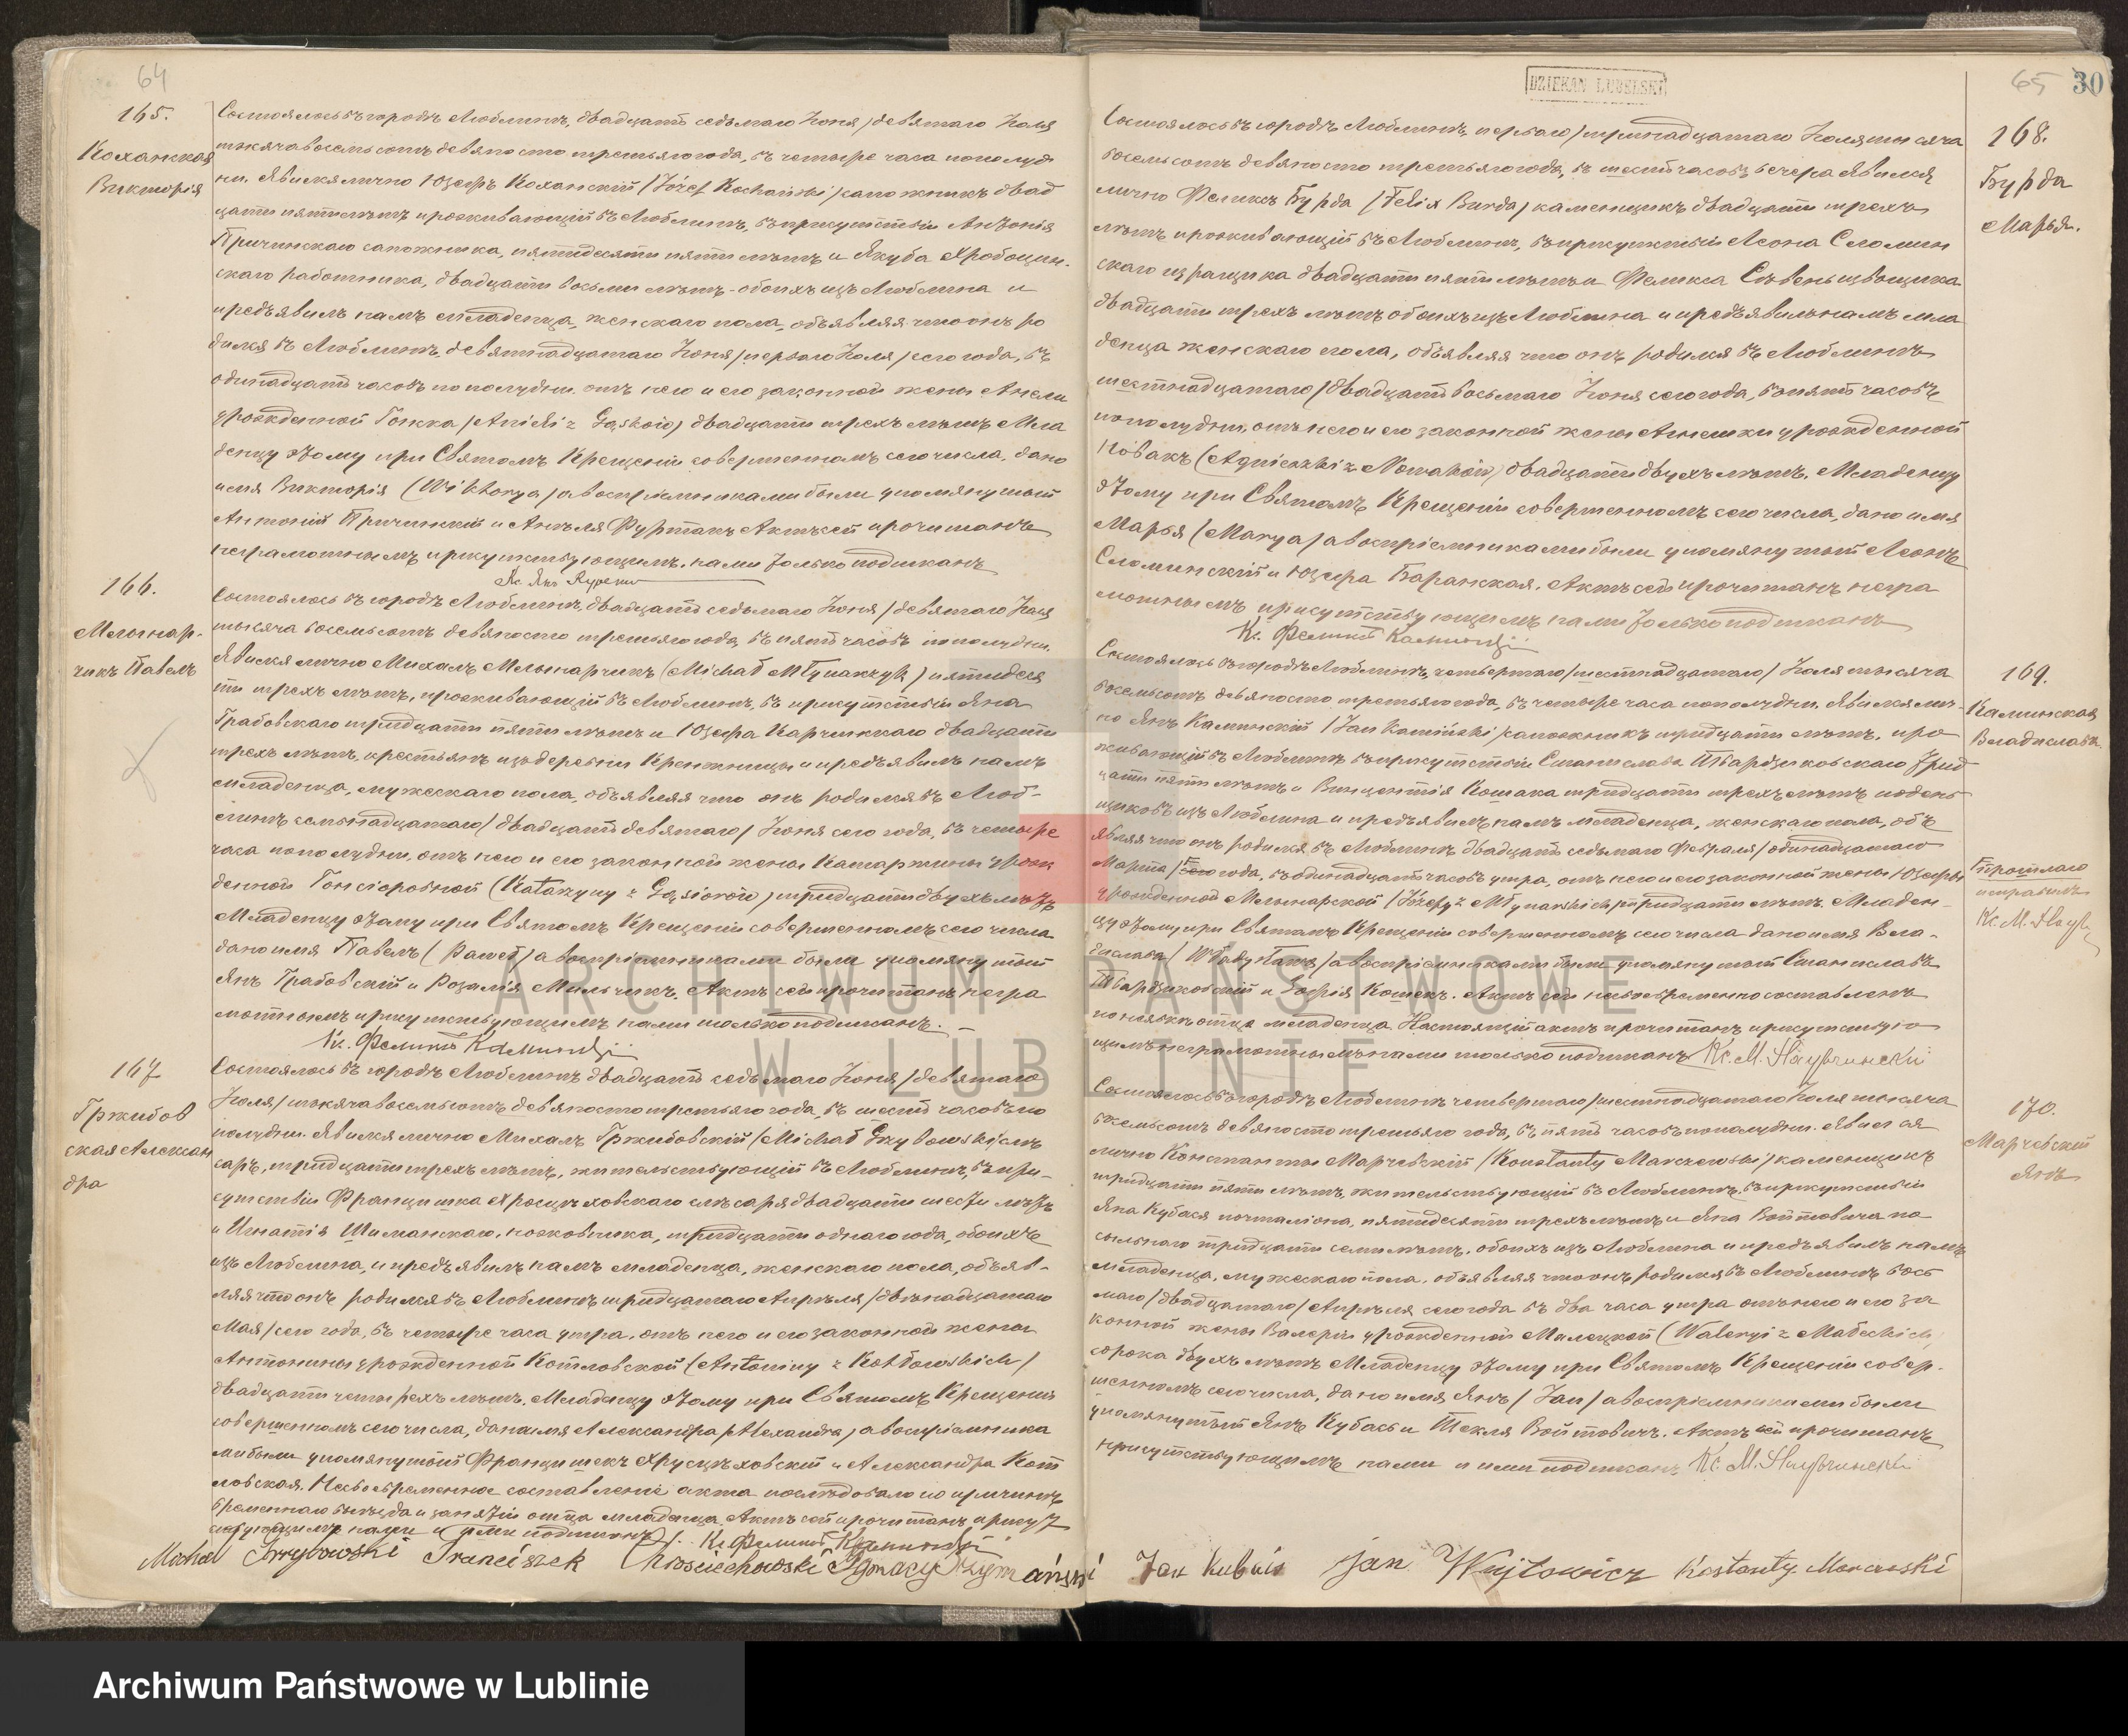 64
165.
Коханская
Викторія
Состоялось въ городѣ Люблинѣ, двадцать седьмаго Іюня / девятаго Іюля
тысяча восемьсотъ девяносто третьяго года, въ четыре часа пополуд
ни. Явился лично Юзефъ Коханскій / Józef Kochański / сапожникъ двад
цати пяти лѣтъ проживающій въ Люблинѣ, въ присутствіи Антонія
Причинскаго сапожника, пятидесяти пяти лѣтъ и Якуба
скаго работника, двадцати восьми лѣтъ - обоихъ изъ Люблина и
предъявилъ намъ младенца, женскаго пола, объявляя что онъ ро
дился въ Люблинѣ, девятнадцатаго Іюня / перваго Іюля / сего года, въ
одинадцать часовъ пополудни, отъ него и его законной жены Анели
урожденной Гонска / Anieli z Gąsków / двадцати трехъ лѣтъ. Мла
денцу этому при Святомъ Крещеніи совершенномъ сего числа, дано
имя Викторія (Wiktorya / а воспріемниками были упомянутый
Антоній Причинскій и Анѣля Фуртакъ. Актъ сей прочитанъ
неграмотнымъ присутствующимъ, нами только подписанъ
Кс. Янъ
166.
Млынар-
чикъ Павелъ
Состоялось въ городѣ Люблинѣ, двадцать седьмаго Іюня / девятаго Іюля
тысяча восемьсотъ девяносто третьяго года, въ пять часовъ пополудни.
Явился лично Михалъ Млынарчикъ (Michał Młynarczyk) пятидеся
ти трехъ лѣтъ, проживающій въ Люблинѣ, въ присутствіи Яна
Грабовскаго тридцати пяти лѣтъ и Юзефа Карчинскаго двадцати
трехъ лѣтъ, крестьянъ изъ деревни Крежницы и предъявилъ намъ
младенца, мужескаго пола, объявляя что онъ родился въ Люб-
линѣ семьнадцатаго / двадцать девятаго / Іюня сего года, въ четыре
часа пополудни, отъ него и его законной жены Катаржины урож
денной Гонсіоровной (Katarzyny z Gąsiorów) тридцати двухъ лѣтъ
Младенцу этому при Святомъ Крещеніи совершенномъ сего числа
дано имя Павелъ (Paweł) а воспріемниками были упомянутый
Янъ Грабовскій и Розалія Мильчикъ. Актъ сей прочитанъ негра
мотнымъ присутствующимъ нами только подписанъ.
Кс. Феликсъ Каминскій
167
Гржибов
ская Алексан
дра
Состоялось въ городѣ Люблинѣ двадцать седьмаго Іюня / девятаго
Іюля / тысяча восемьсотъ девяносто третьяго года въ шесть часовъ по
полудни. Явился лично Михалъ Гржибовскій / Michał Grzybowski / слѣ
саръ, тридцати трехъ лѣтъ, жительствующій въ Люблинѣ, въ при-
сутствіи Францишка Хросцѣховскаго слѣсаря двадцати шести лѣтъ
и Игнатія Шиманскаго, ножовника, тридцати одного года, обоихъ
изъ Люблина, и предъявилъ намъ младенца, женскаго пола, объяв-
ляя что онъ родился въ Люблинѣ тридцатаго Апрѣля / двѣнадцатаго
Мая / сего года, въ четыре часа утра, отъ него и его законной жены
Антонины урожденной Котловской (Antoniny z Kotłowskich /
двадцати четырехъ лѣтъ. Младенцу этому при Святомъ Крещеніи
совершенномъ сего числа, дано имя Александра / Alexandra / а воспріемника
ми были упомянутый Францишекъ Хрусцѣховскій и Александра Кот
ловская. Несвоевременное составленіе акта послѣдовало по причинѣ
временнаго выѣзда и занятій отца младенца. Актъ сей прочитанъ присут
ствующимъ нами и ими подписанъ. Кс. Феликсъ Каминскій
Michał Grzybowski Franciszek Chrościechowski Ignacy Szymański
DZIEKAN LUBELSKI
65 30
168.
Бурда
Марья.
Состоялось въ городѣ Люблинѣ, перваго / тринадцатаго Іюля тысяча
восемьсотъ девяносто третьяго года, въ шесть часовъ вечера Явился
лично Феликсъ Бурда / Felix Burda / каменщикъ двадцати трехъ
лѣтъ проживающій въ Люблинѣ, въ присутствіи Леона Сломин
скаго двадцати пяти лѣтъ и Феликса
двадцати трехъ лѣтъ обоихъ изъ Люблина и предъявилъ намъ мла
денца женскаго пола, объявляя что онъ родился въ Люблинѣ
шестнадцатаго / двадцать восьмаго Іюня сего года, въ пять часовъ
пополудни, отъ него и его законной жены Агнешки урожденной
Новакъ (Agnieszki z Nowaków) двадцати двухъ лѣтъ. Младенцу
этому при Святомъ Крещеніи совершенномъ сего числа, дано имя
Марья (Marya / а воспріемниками были упомянутый Леонъ
Сломинскій и Юзефа Баранская. Актъ сей прочитанъ негра
мотнымъ присутствующимъ нами только подписанъ
Кс. Феликсъ Каминскій
169.
Каминская
Владислава.
Состоялось въ городѣ Люблинѣ, четвертаго / шестнадцатаго / Іюля тысяча
восемьсотъ девяносто третьяго года, въ четыре часа пополудни. Явился лич-
но Янъ Каминскій / Jan Kamiński / сапожникъ тридцати лѣтъ, про
живающій въ Люблинѣ въ присутствіи Станислава Твардзиковскаго трид
цати пяти лѣтъ и Винцентія Кошака тридцати трехъ лѣтъ поден
щиковъ изъ Люблина и предъявилъ намъ младенца, женскаго пола, объ
являя что онъ родился въ Люблинѣ двадцать седьмаго Февраля / одинадцатаго
Марта / сего года, въ одинадцать часовъ утра, отъ него и его законной жены Юзефы
урожденной Млынарской / Józefy z Młynarskich / тридцати лѣтъ. Младен-
цу этому при Святомъ Крещеніи совершенномъ сего числа дано имя Вла-
дислава / Władysława / а воспріемниками были упомянутый Станиславъ
Твардзиковскій и Зофія Кошекъ. Актъ сей несвоевременно составленъ
по отца младенца. Настоящій актъ прочитанъ присутствую
щимъ неграмотнымъ нами только подписанъ Кс. М.
Прошлаго
исправилъ
Кс. М.
170.
Марчевскій
Янъ
Состоялось въ городѣ Люблинѣ четвертаго / шестнадцатаго Іюля тысяча
восемьсотъ девяносто третьяго года, въ пять часовъ пополудни. Явился
лично Константы Марчевскій / Konstanty Marczewski / каменщикъ
тридцати пяти лѣтъ, жительствующій въ Люблинѣ, въ присутствіи
Яна Кубася почталіона, пятидесяти трехъ лѣтъ и Яна Войтовича по
сыльнаго тридцати семи лѣтъ, обоихъ изъ Люблина и предъявилъ намъ
младенца, мужескаго пола, объявляя что онъ родился въ Люблинѣ вось
маго / двадцатаго / Апрѣля сего года въ два часа утра отъ него и его за
конной жены Валеріи урожденной Малецкой (Waleryi z Małeckich)
сорока двухъ лѣтъ Младенцу этому при Святомъ Крещеніи совер-
шенномъ сего числа, дано имя Янъ / Jan / а воспріемниками были
упомянутый Янъ Кубась и Текля Войтовичъ. Актъ сей прочитанъ
присутствующимъ нами и ими подписанъ Кс. М.
Jan Kubaś Jan Wujtowicz Kostanty Marcewski
ARCHIWUM PAŃSTWOWE
W LUBLINIE
Archiwum Państwowe w Lublinie